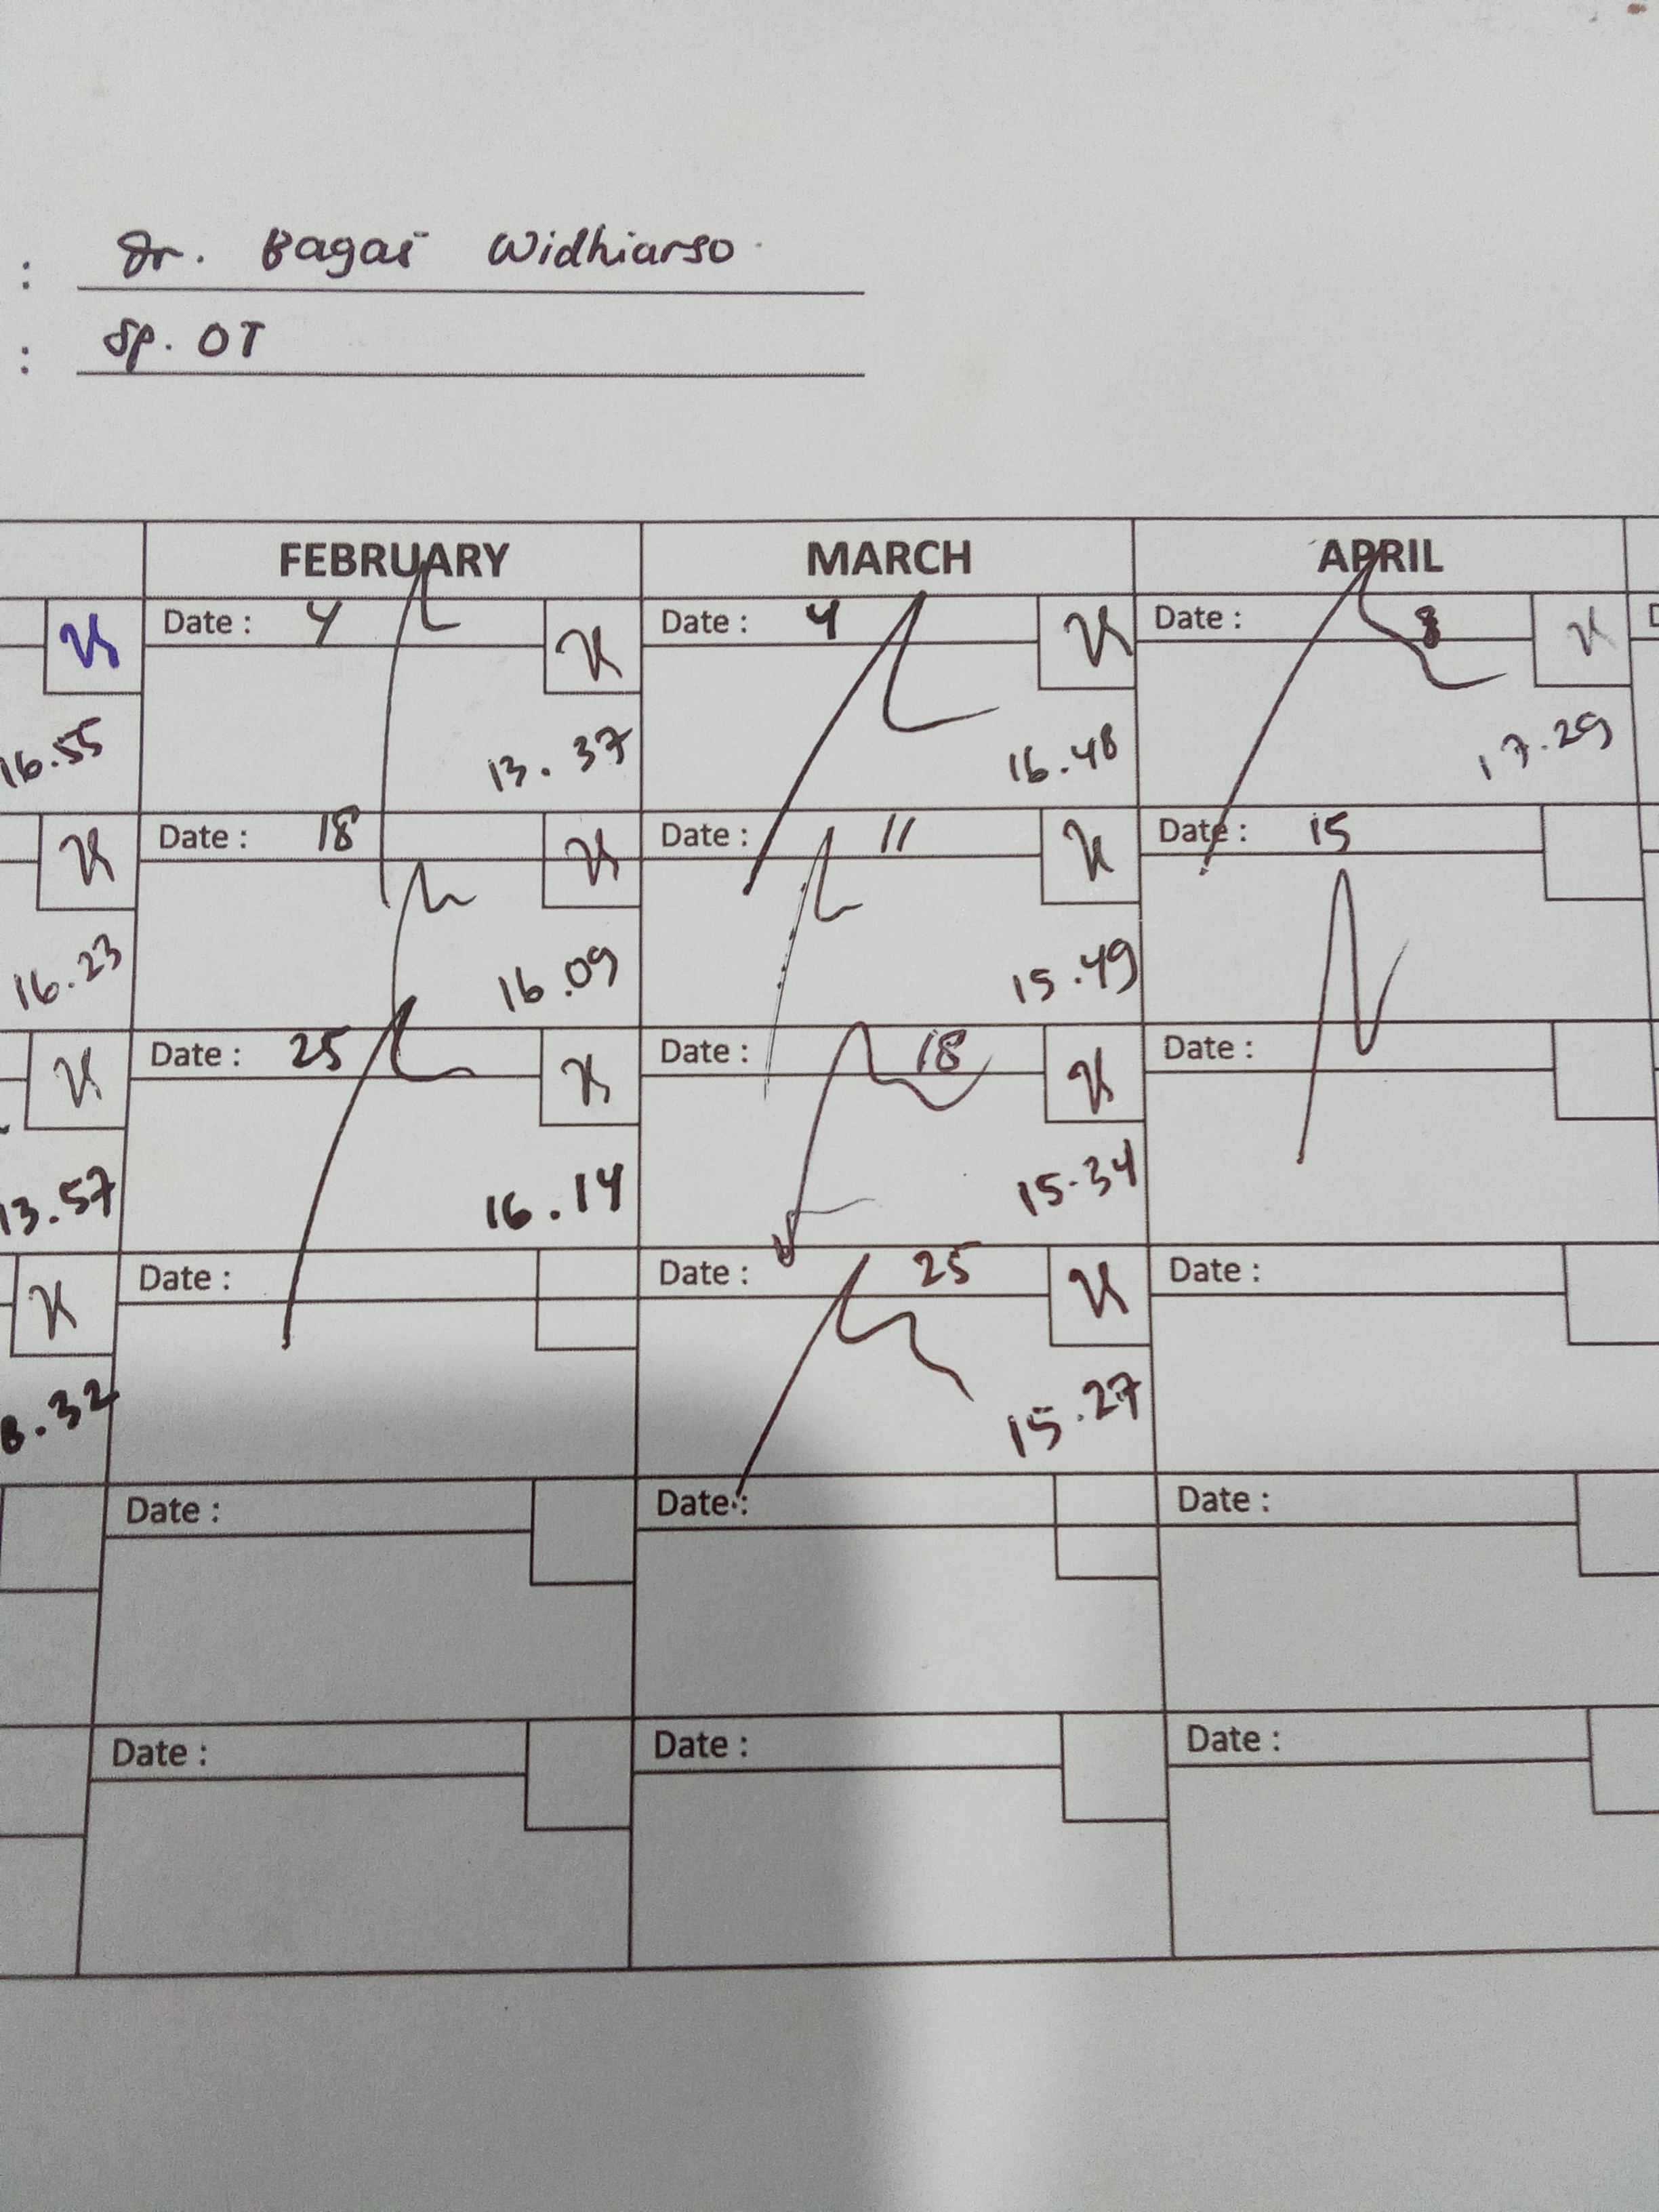 : dr. Bagas Widhiarso
: Sp. OT
FEBRUARY MARCH APRIL
Date : 4 Date : 4 Date : 8
16.55 13.37 16.48 17.29
Date : 18 Date : 11 Date : 15
16.23 16.09 15.49
Date : 25 Date : 18 Date :
13.57 16.14 15.34
Date : Date : 25 Date :
8.32 15.27
Date : Date : Date :
Date : Date : Date :